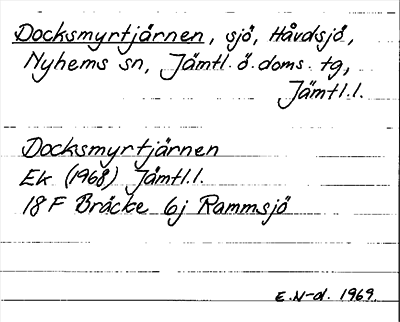 Docksmyrtjärnen, sjö, Håvdsjö,
Nyhems sn, Jämtl. ö. doms. tg,
Jämtl.l.
Docksmyrtjärnen
Ek (1968) Jämtl.l.
18 F Bräcke 6j Rammsjö
E.N-d. 1969.